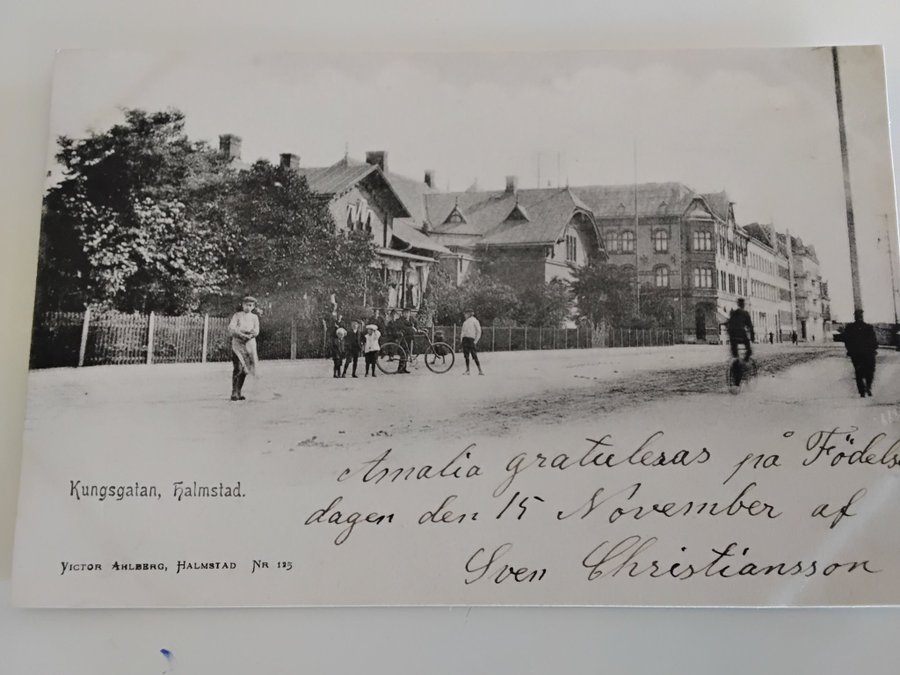 Amalia gratuleras på Födelse
dagen den 15 November af
Sven Christiansson
Kungsgatan, Halmstad.
VICTOR AHLBERG, HALMSTAD NR 125